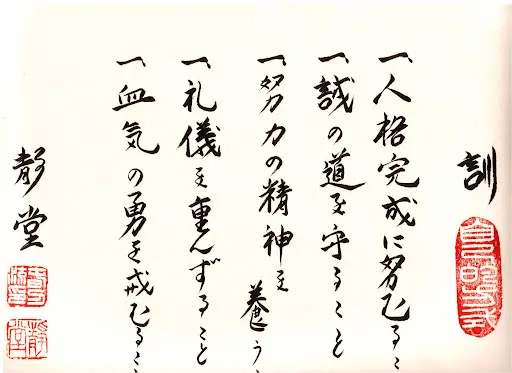 訓
一人格完成に努むるこ
一誠の道を守ること
一努力の精神を養うこ
一礼儀を重んずること
一血気の勇を戒むるこ
静堂
静堂